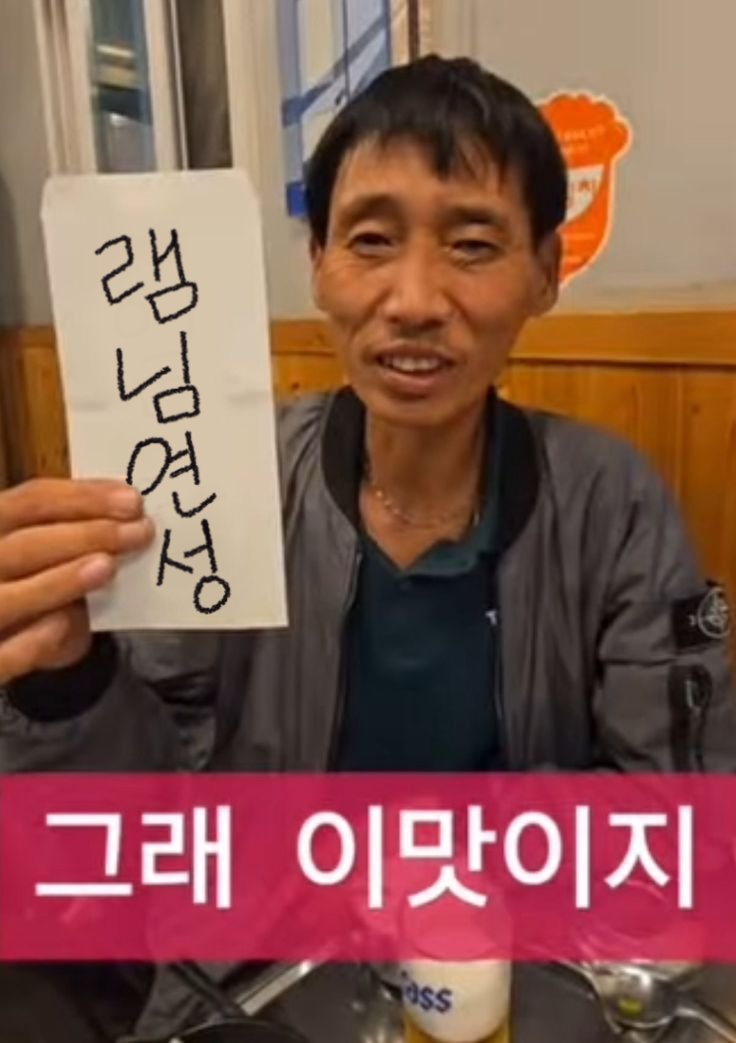 램
님
연
성
그래 이맛이지